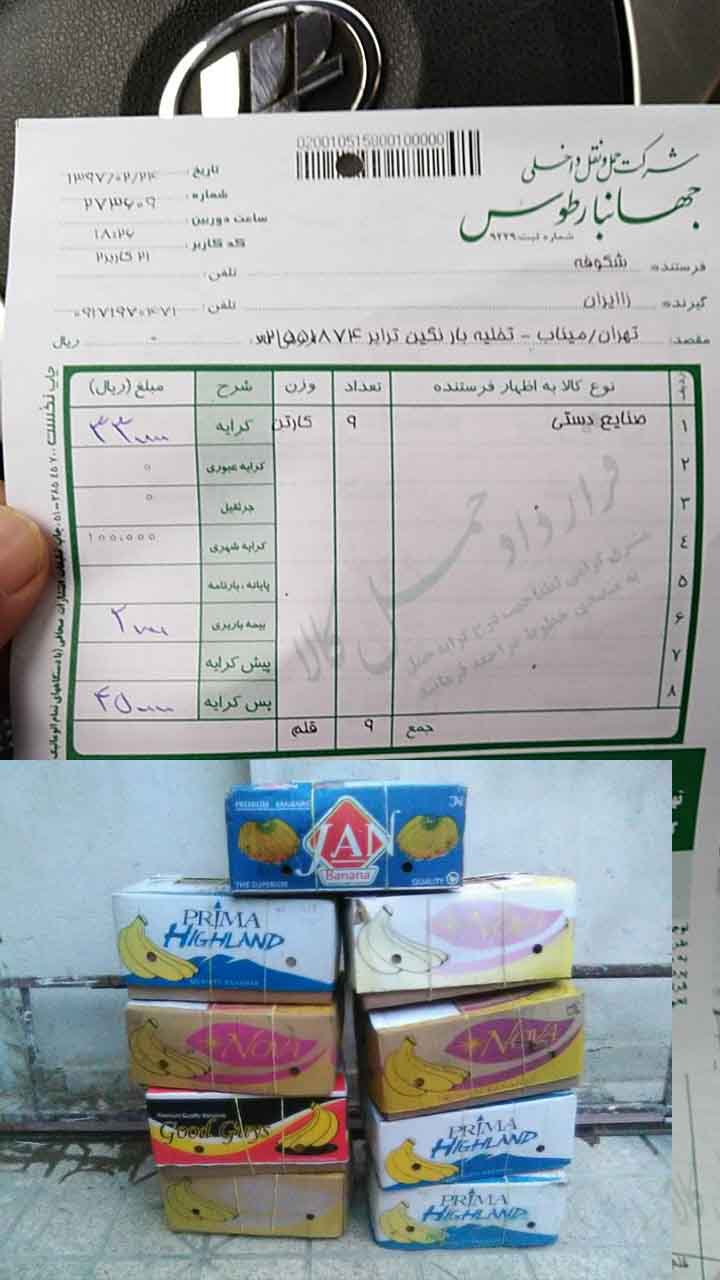 020010515000100000
شرکت حمل و نقل داخلی
جهانبار طوس
شماره ثبت: ۹۲۲۹
تاریخ: ۱۳۹۷/۰۲/۲۴
شماره: ۲۷۳۶۰۹
ساعت دوربین: ۱۸:۲۶
کد کاربر: ۲۱ کاربر۲
فرستنده: شکوفه تلفن:
گیرنده: زاایران تلفن: ۰۹۱۷۱۹۷۰۴۷۱
مقصد: تهران/میناب - تخلیه بار نگین ترابر ۰ ریال
ردیف نوع کالا به اظهار فرستنده تعداد وزن شرح مبلغ (ریال)
۱ صنایع دستی ۹ کارتن کرایه
۲ کرایه عبوری ۰
۳ جرثقیل ۰
۴ کرایه شهری ۱۰۰,۰۰۰
۵ پایانه ، بارنامه
۶ بیمه باربری
۷ پیش کرایه
۸ پس کرایه
جمع ۹ قلم
قرارداد حمل کالا
PREMIUM BANANAS
JAN
Banana
THE SUPERIOR QUALITY
PRIMA
HIGHLAND
NOVA
NOVA
NOVA
Premium Quality Bananas
Good Guys
PRIMA
HIGHLAND
PRIMA
HIGHLAND